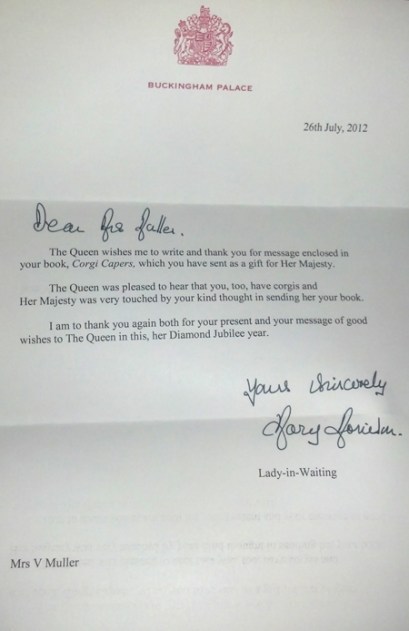 BUCKINGHAM PALACE
26th July, 2012
Dear Mrs Muller.
The Queen wishes me to write and thank you for message enclosed in
your book, Corgi Capers, which you have sent as a gift for Her Majesty.
The Queen was pleased to hear that you, too, have corgis and
Her Majesty was very touched by your kind thought in sending her your book.
I am to thank you again both for your present and your message of good
wishes to The Queen in this, her Diamond Jubilee year.
Yours sincerely
Mary
Lady-in-Waiting
Mrs V Muller